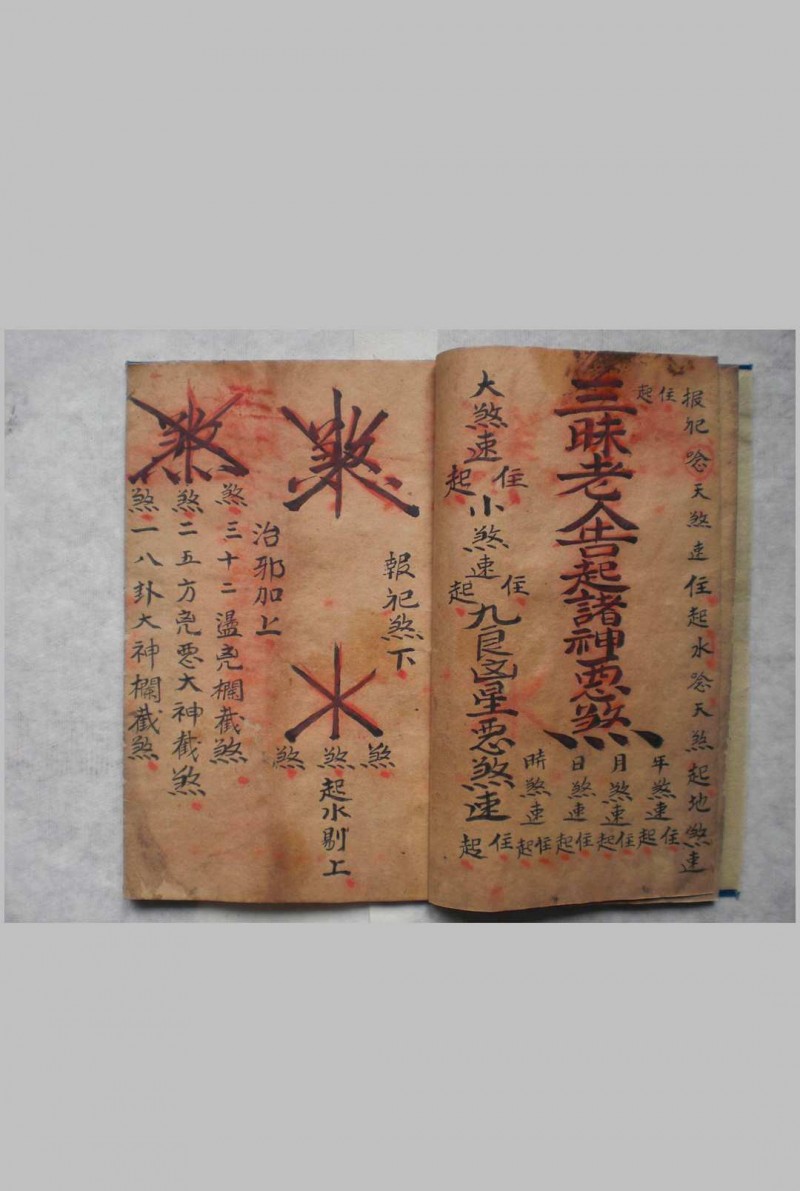 报犯唸天煞速住起水唸天煞起地煞速
住起
三昧老人吿起諸神惡煞
年煞速住起
月煞速住起
日煞速住起
時煞速住起
大煞速住起小煞速住起九良凶星惡煞速住起
報犯煞下
煞
煞煞煞
起水剔上
治邪加上
煞
煞三十二盪兇欄截煞
煞二五方兇惡大神截煞
煞一八卦大神欄截煞